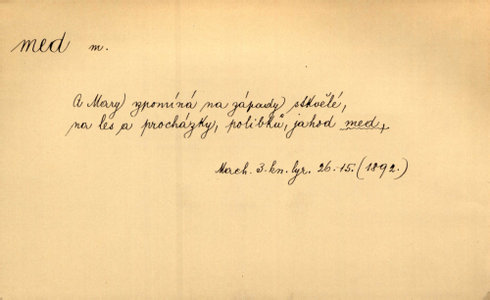 med m.
A Mary vzpomíná na západy stkvělé,
na les a procházky, polibků, jahod med,
Mach. 3. kn. lyr. 26.-15. (1892.)